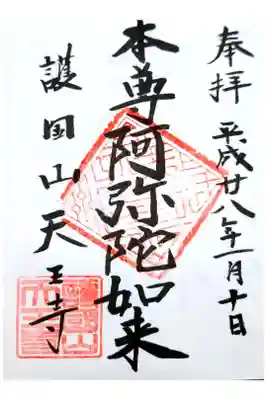 奉拝 平成廿八年一月十日
本尊阿弥陀如来
護国山天王寺